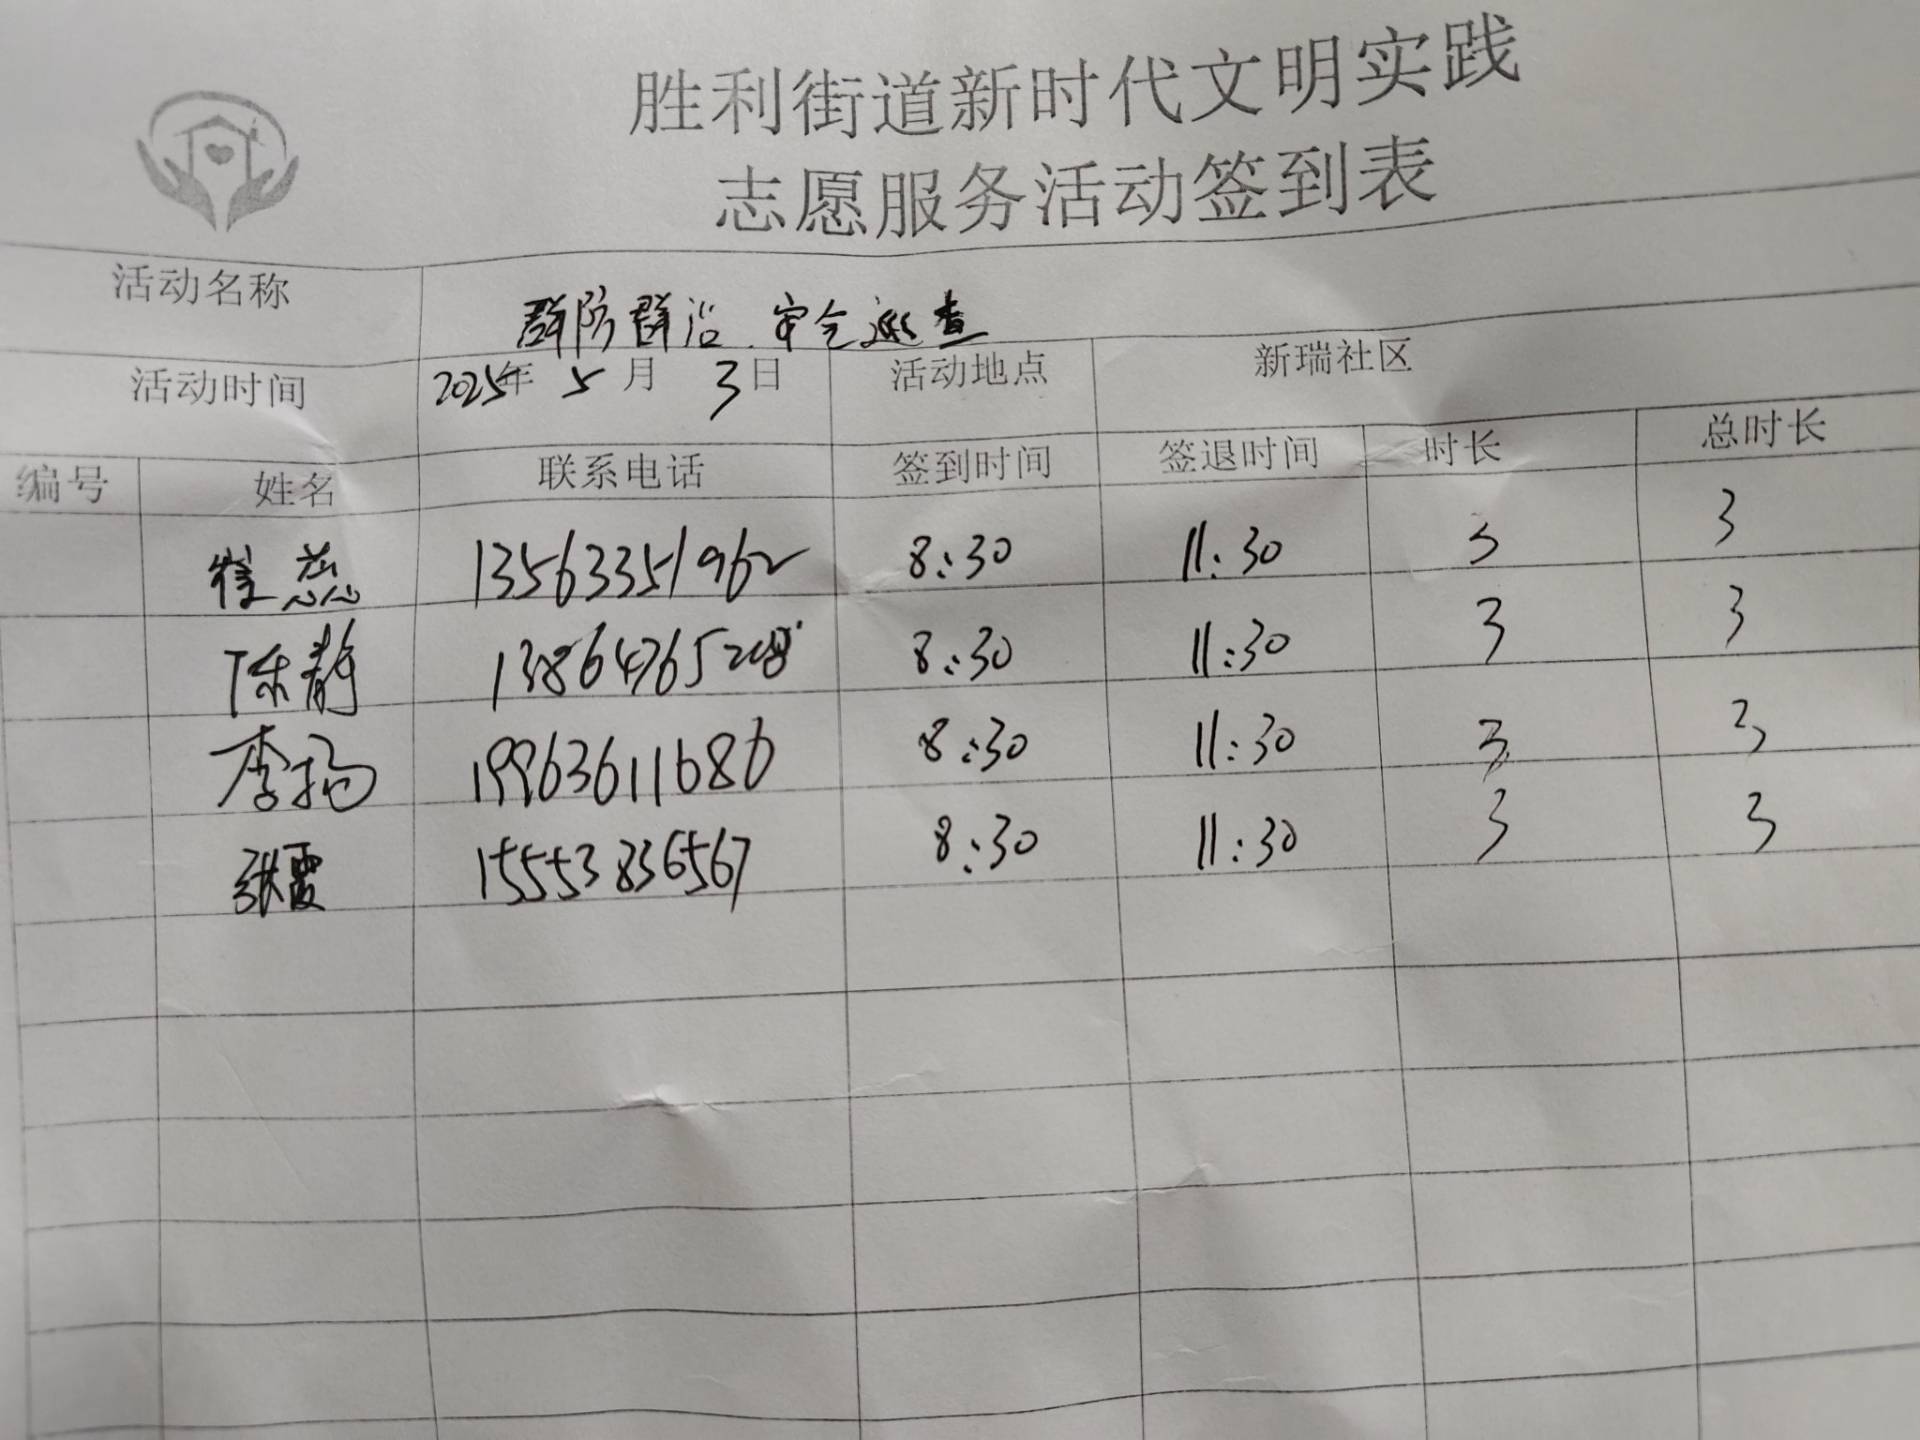 胜利街道新时代文明实践
志愿服务活动签到表
活动名称 群防群治、安全巡查
活动时间 2025年 5 月 3 日 活动地点 新瑞社区
编号 姓名 联系电话 签到时间 签退时间 时长 总时长
崔蕊 13563351962 8:30 11:30 3 3
陈静 13864765208 8:30 11:30 3 3
李扬 19963611686 8:30 11:30 3 3
张霞 15553836567 8:30 11:30 3 3